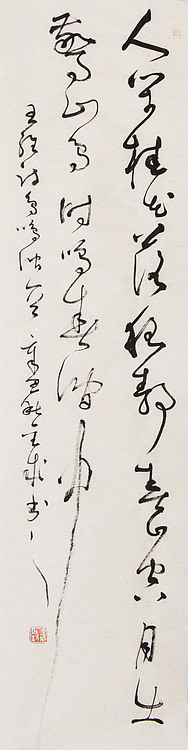 人闲桂花落夜静春山空月出
惊山鸟时鸣春涧中
王维诗鸟鸣涧